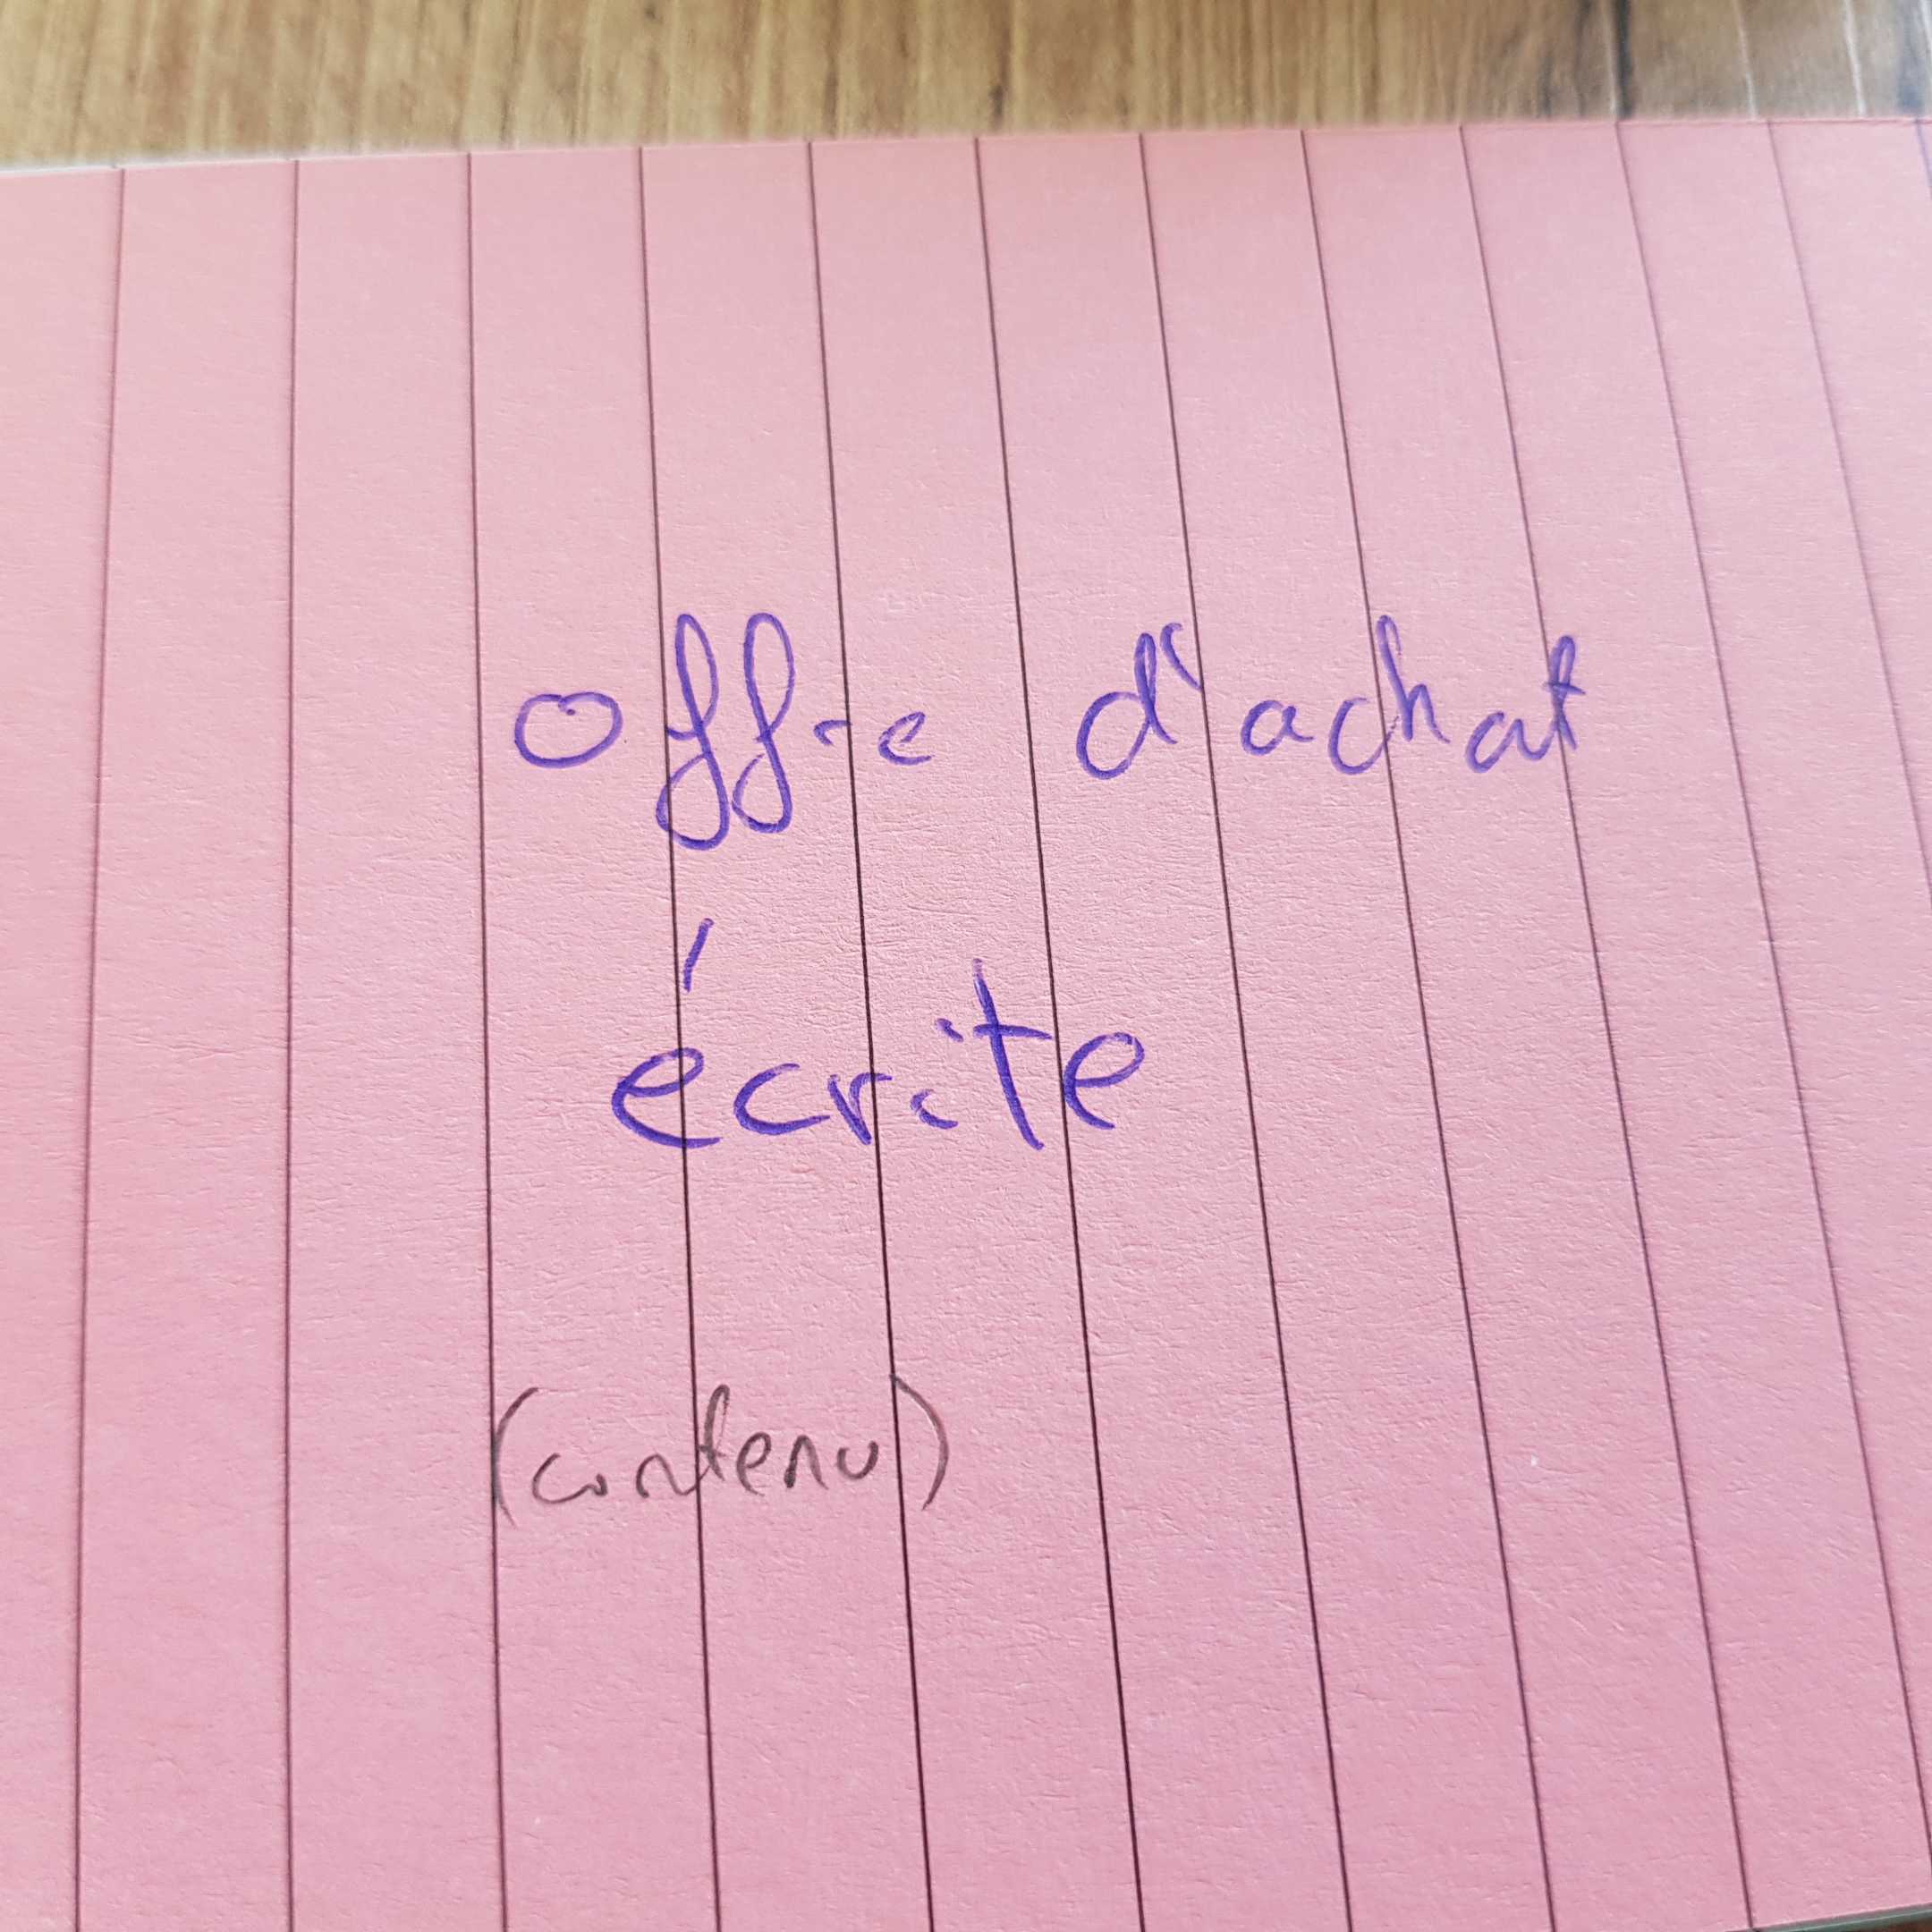 offre d'achat
écrite
(contenu)